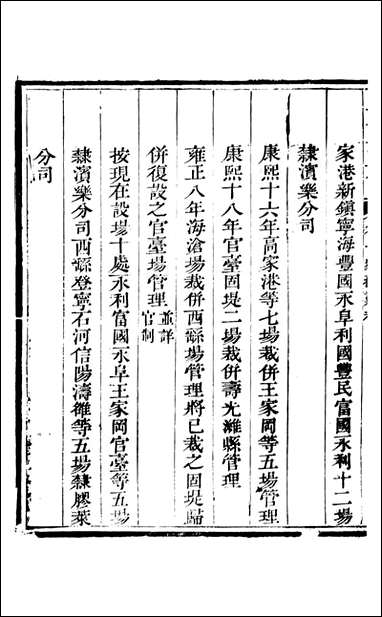 家港新鎮寧海豐國永阜利國豐民富國永利十二場
隸濱樂分司
康熙十六年高家港等七場裁併王家岡等五場管理
康熙十八年官臺固堤二場裁併壽光濰縣管理
雍正八年海滄場裁併西繇場管理將已裁之固堤歸
併復設之官臺場管理 並詳
官制
按現在設場十處永利富國永阜王家岡官臺等五場
隸濱樂分司西繇登寧石河信陽濤雒等五場隸膠萊
分司